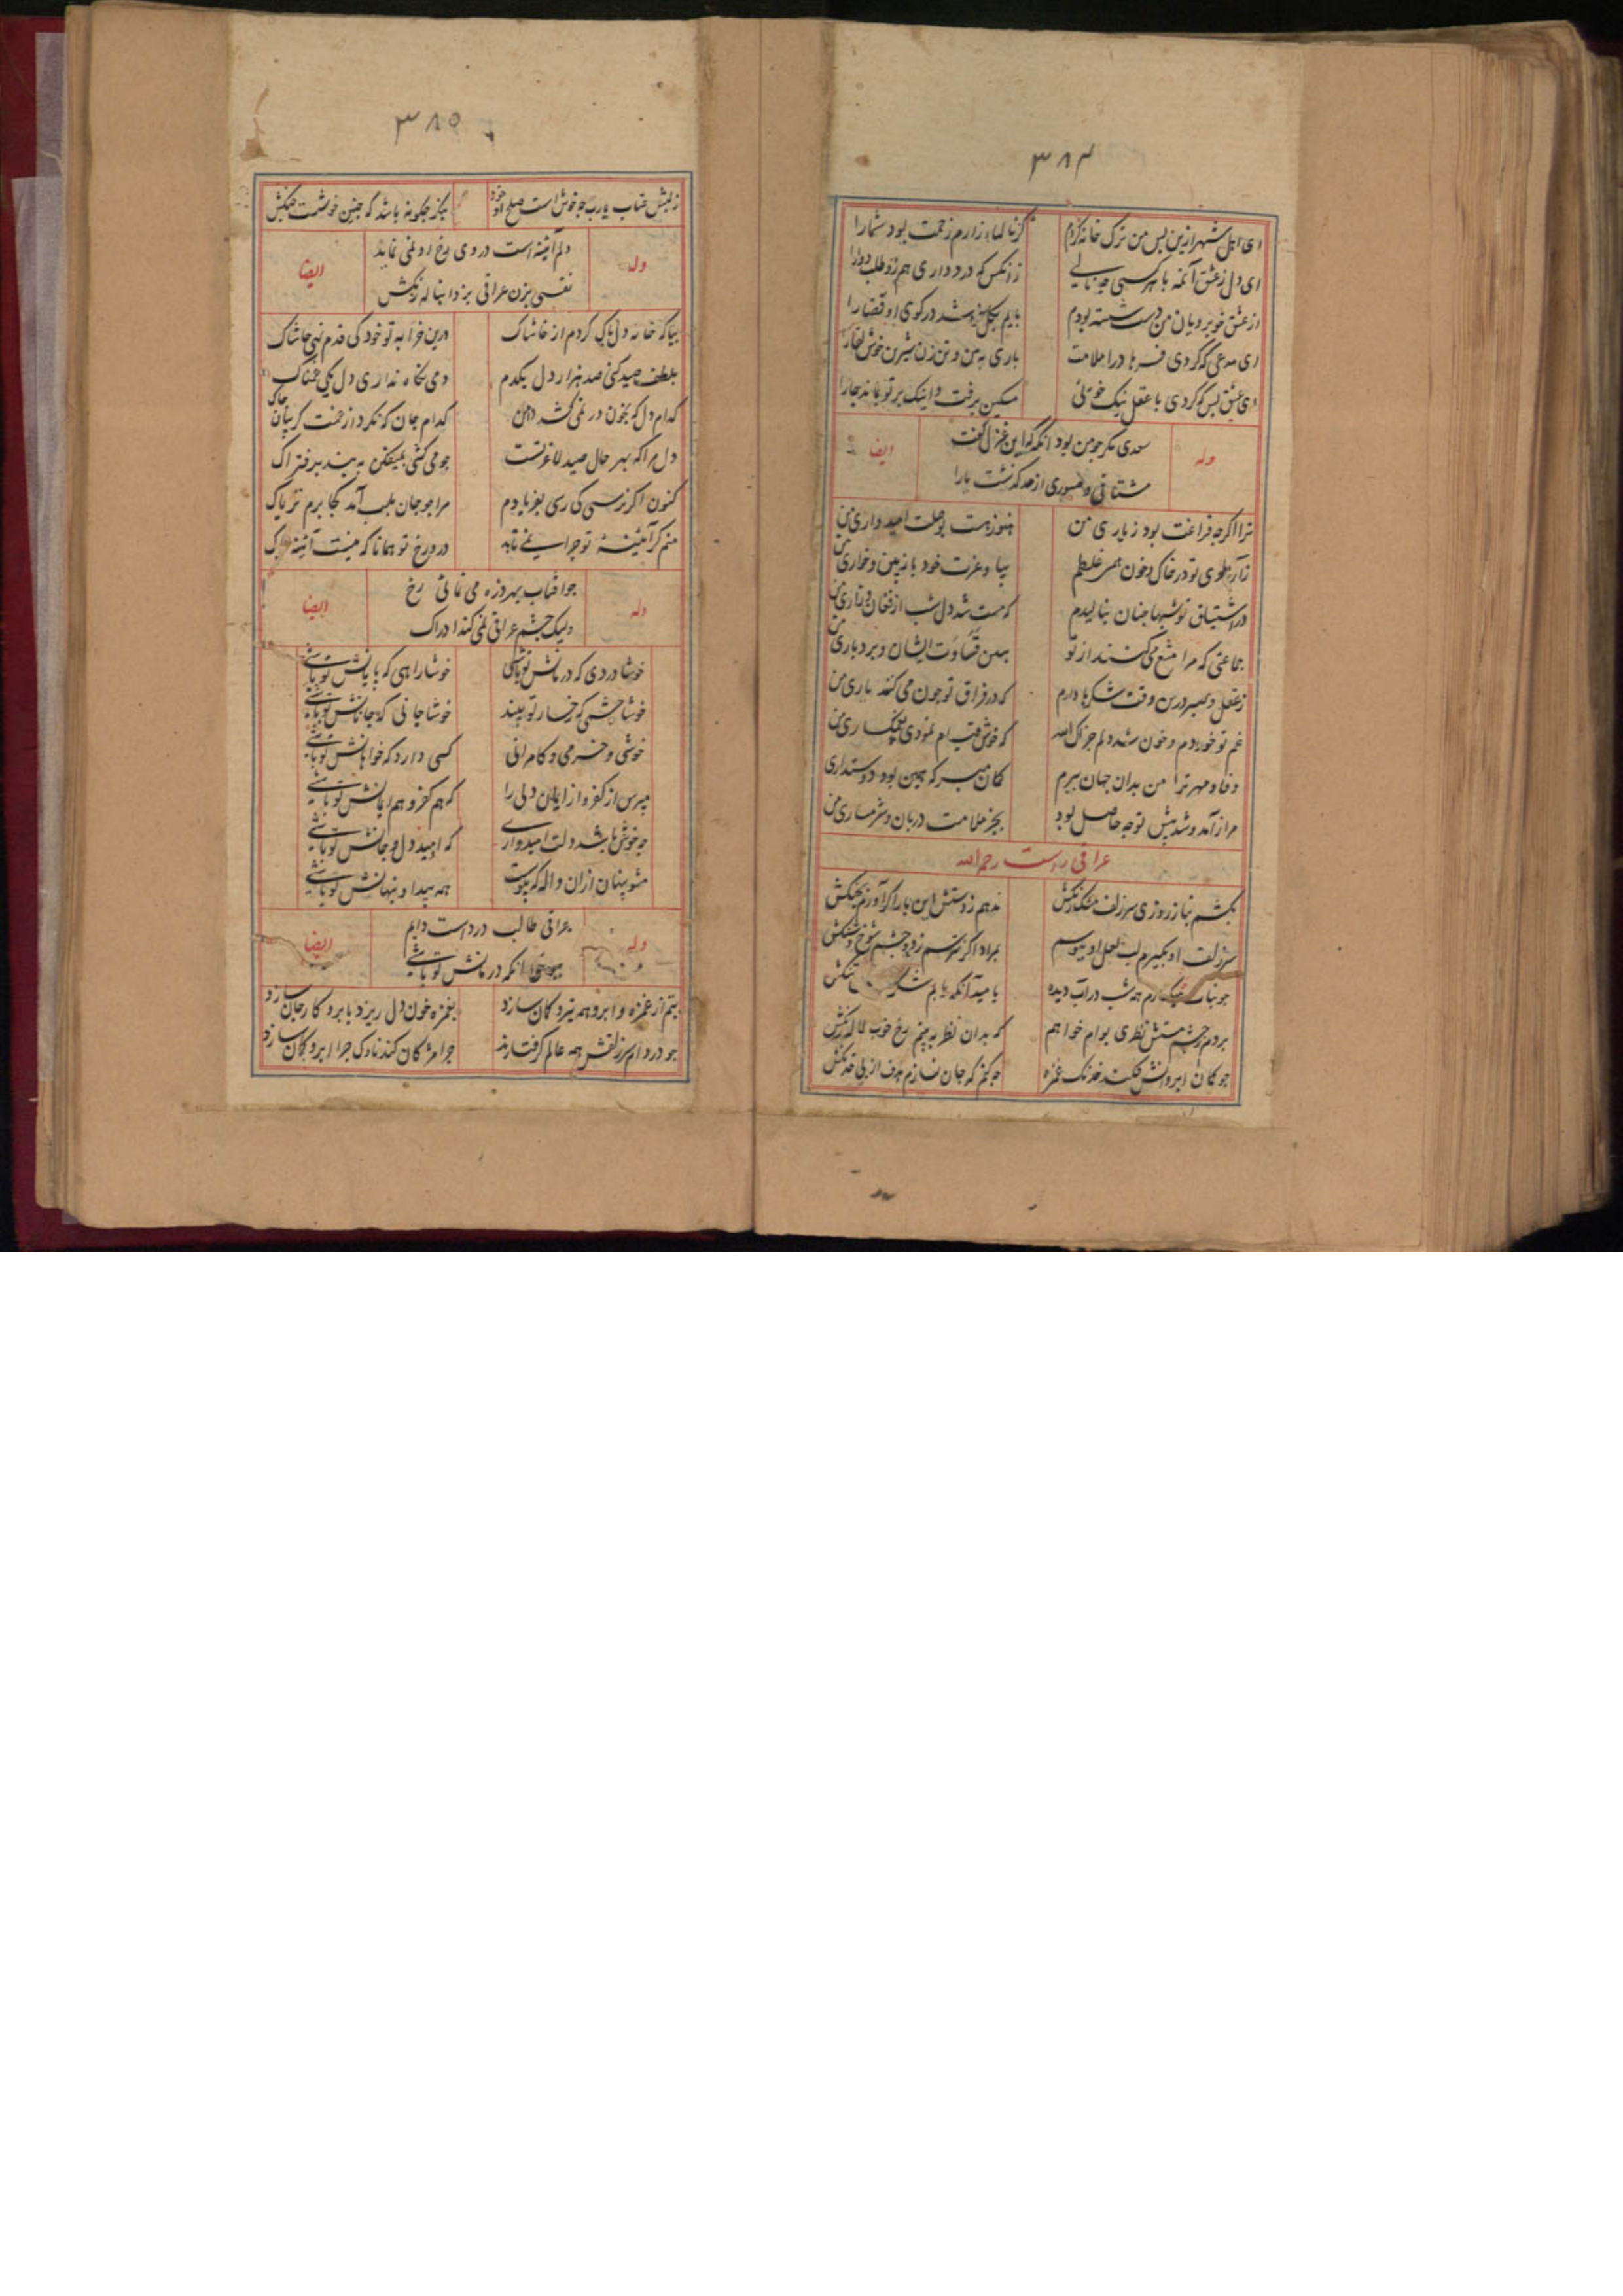 ۳۸۴
ای اهل شهر ازین پس من ترک خانه کردم گر ناله‌اء زارم زحمت بود شما را
ای دل ز عشق آنمه با هر کسی چه نالی زانکس که درد داری هم زو طلب دوا را
از عشق خوبرویان من دست شسته بودم پایم بکل فرو شد در کوی او قضا را
ای مدعی که کردی فرهاد را ملامت باری به بین و تن زن شیرین خوش لقا را
ای عشق بس که کردی با عقل نیک خوئی مسکین برفت و اینک بر تو بماند جا را
وله سعدی مکر جو من بود انکه که این غزل کفت ایضا
مشتاقی و صبوری از حد کذشت یارا
ترا اکرجه فراغت بود ز یاری من هنوز هست بوصلت امیدواری من
در خاک و خون همی غلطم بیا و عزت خود باز بین و خواری من
در اشتیاق تو شبها جنان بنالیدم که مست شد دل شب از فغان و زاری من
جماعتی که مرا منع می کنند از تو ببین قساوت ایشان و بردباری من
ز عقل و صبر درین وقت شکرها دارم که در فراق تو جون می کند یاری من
غم تو خوردم و خون شد دلم جزاک الله که خوش قیام نمودی
وفا و مهر ترا من بدان جهان ببرم کمان مبر که همین بود دوستداری
مرا ز آمد و شد پیش تو جه حاصل بود بجز ملامت دربان و شرمساری من
عراقی راست رحمه الله
بکشم بناز روزی سر زلف مشک رنکش ندهم ز دستش این بار اکر آورم بجنکش
سر زلف او بکیرم لب لعل او ببوسم بمراد اکر نترسم ز دو جشم شوخ و شنکش
همه شب در آب دیده بامید آنکه یابم تنکش
بروم ز جشم مستش نظری بوام خواهم که بدان نظر به بینم رخ خوب لاله رنکش
جو کمان ابروانش فکند خدنک غمزه جو کنم که جان نسازم هدف از پی خدنکش
۳۸۵
ز لبش عتاب یارب جه خوش است صلح او خود بنکر جکونه باشد که جنین خوشست جنکش
وله دلم آینه است در وی رخ او نمی نماید ایضا
نفسی بزن عراقی بزدا بناله زنکش
بیا که خانه دل پاک کردم از خاشاک درین خرابه تو خود کی قدم نهی حاشاک
بلطف صید کنی صد هزار دل یکدم ولی نکاه نداری دل یکی غمناک
کدام دل که بخون در نمی کشد دامن کدام جان که نکرد از غمت کریبان جاک
دل مرا که بهر حال صید لاغر تست جو می کشی بمیفکن به بند بر فتراک
کنون اکر نرسی کی رسی بفریادم مرا جو جان بلب آمد کجا برم تریاک
منم کر آئینهٔ تو جرا نمی تابد درو رخ تو همانا که نیست آئینه پاک
وله جو آفتاب بهر روزه می نمائی رخ ایضا
ولیک جشم عراقی نمی کند ادراک
خوشا دردی که درمانش تو باشی خوشا راهی که پایانش تو باشی
خوشا جشمی که رخسار تو بیند خوشا جانی که جانانش تو باشی
خوشی و خرمی و کامرانی کسی دارد که خواهانش تو باشی
مپرس از کفر و از ایمان دلی را که هم کفر و هم ایمانش تو باشی
جه خوش باشد دلت امیدواری که امید دل و جانش تو باشی
مشو پنهان ازان واله که پیوست همه پیدا و پنهانش تو باشی
وله عراقی طالب درد است دایم ایضا
انکه درمانش تو باشی
بتم از غمزه و ابرو همه تیر و کمان سازد بغمزه خون دل ریزد بابرو کار جان سازد
جو در دام سر زلفش همه عالم کرفتارند جرا مژکان کند ناوک جرا ابرو کمان سازد